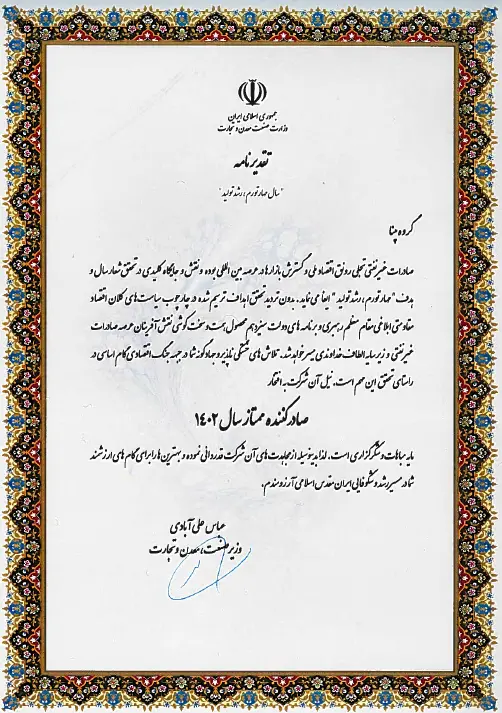 جمهوری اسلامی ایران
وزارت صنعت معدن و تجارت
تقدیرنامه
"سال مهار تورم، رشد تولید"
گروه پنا
صادرات غیرنفتی تجلی رونق اقتصاد ملی و گسترش بازارها در عرصه بین المللی بوده و نقش و جایگاه کلیدی در تحقق شعار سال و
هدف "مهار تورم، رشد تولید" ایفا می نماید. بدون تردید تحقق اهداف ترسیم شده در چارچوب سیاست های کلان اقتصاد
مقاومتی ابلاغی مقام معظم رهبری و برنامه های دولت سیزدهم محصول همت و سخت کوشی نقش آفرینان عرصه صادرات
غیرنفتی و زیر سایه الطاف خداوندی میسر خواهد شد. تلاش های خستگی ناپذیر و جهادگونه شما در جبهه جنگ اقتصادی گام اساسی در
راستای تحقق این مهم است. نیل آن شرکت به افتخار
صادرکننده ممتاز سال ۱۴۰۲
مایه مباهات و شکرگزاری است. لذا بدینوسیله از مجاهدت های آن شرکت قدردانی نموده و بهترین ها را برای گام های ارزشمند
شما در مسیر رشد و شکوفایی ایران مقدس اسلامی آرزومندم.
عباس علی آبادی
وزیر صنعت، معدن و تجارت